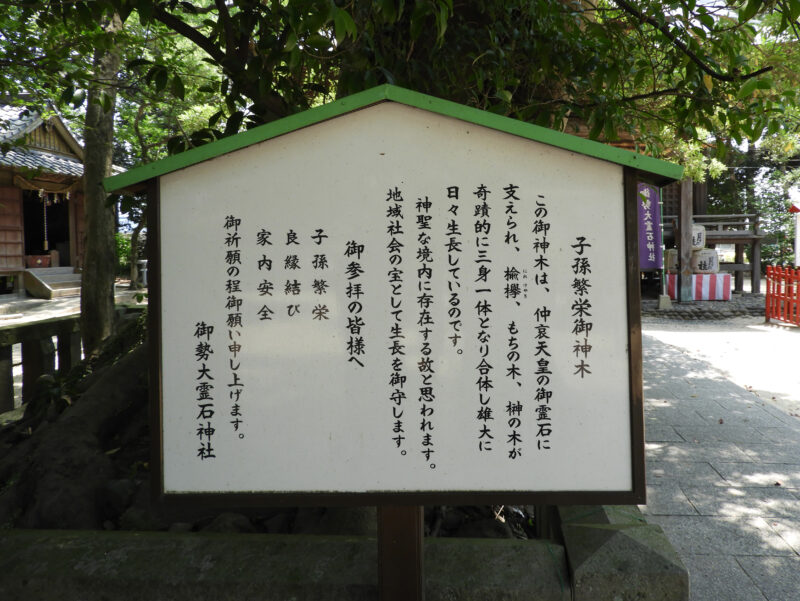 子孫繁栄御神木
この御神木は、仲哀天皇の御霊石に
支えられ、楡欅、もちの木、榊の木が
にれ けやき
奇蹟的に三身一体となり合体し雄大に
日々生長しているのです。
神聖な境内に存在する故と思われます。
地域社会の宝として生長を御守します。
御参拝の皆様へ
子孫繁栄
良縁結び
家内安全
御祈願の程御願い申し上げます。
御勢大霊石神社
御勢大霊石神社